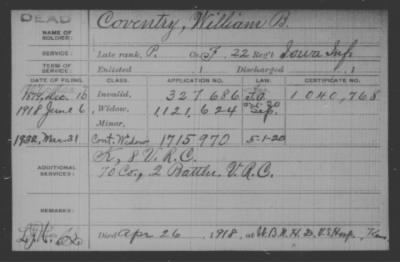 DEAD
Coventry, William B.
NAME OF SOLDIER:
SERVICE: Late rank, P. Co. F, 22 Reg't Iowa Inf
TERM OF SERVICE: Enlisted Discharged
DATE OF FILING. CLASS. APPLICATION NO. LAW. CERTIFICATE NO.
1879, Dec. 15 Invalid, 327,686 1,040,768
1918 June 6 Widow, 1,121,624
Minor,
1932, Mar 21 Cont. Widow 1715970 5-1-20
ADDITIONAL SERVICES: K, 8 V.R.C.
70 Co., 2 Battln. V.R.C.
REMARKS:
Died Apr 26, 1918, at